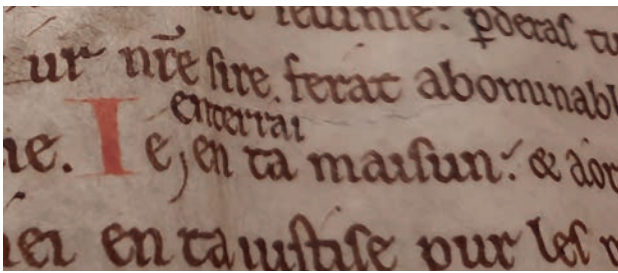 feluinie. ꝑderas tu
ur nr̄e sire. ferat abominabl
enterrai
ie. Ie, en ta maisun. & aor
iei en ta iustise pur les